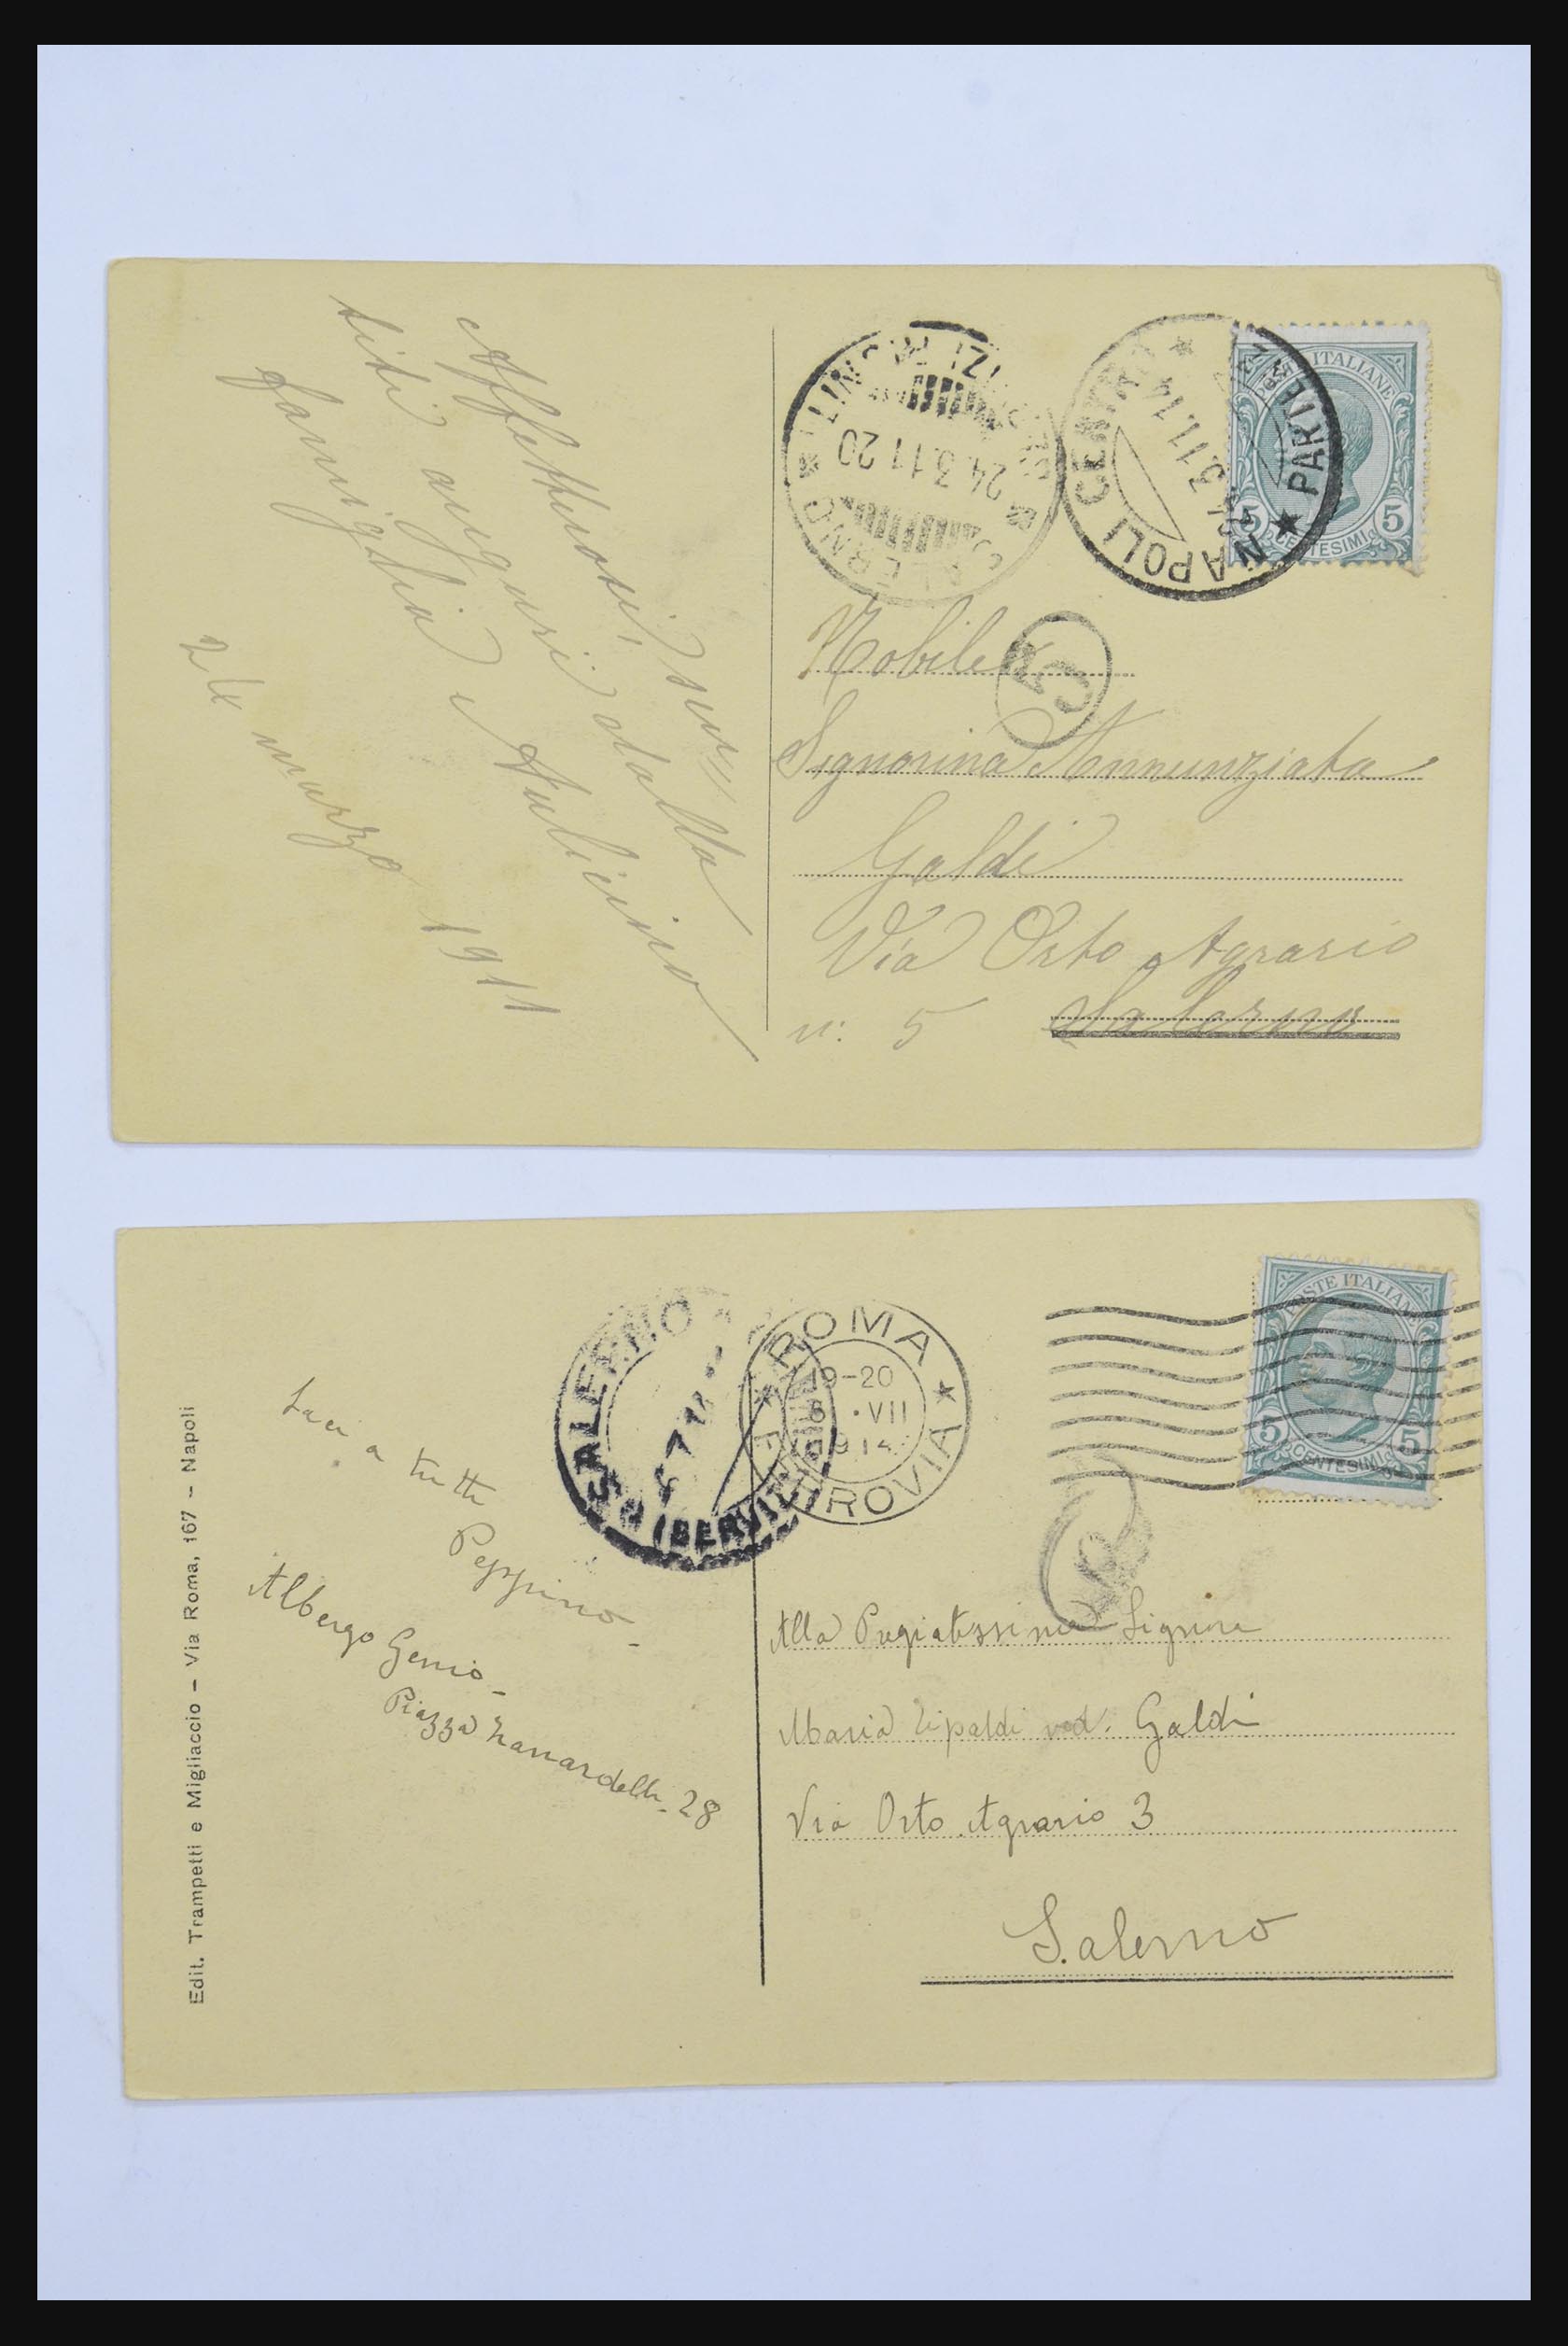 Affettuosi, sen
titi auguri dalla
famiglia Aulisino
24 marzo 1911
SALERNO
24.3.11 20
NAPOLI CENTRO
★ PARTENZE ★
24.3.11.14
POSTE ITALIANE
5 5
CENTESIMI
5
Nobile
Signorina Annunziata
Galdi
Via Orto Agrario
n: 5 Salerno
Edit. Trampetti e Migliaccio – Via Roma, 167 – Napoli
Baci a tutti
Peppino –
Albergo Genio –
Piazza Zanardelli – 28
SALERNO
ROMA
19-20
6 • VII
1914
FERROVIA
POSTE ITALIANE
5 5
CENTESIMI
Alla Pregiatissima Signora
Maria Ripaldi ved. Galdi
Via Orto Agrario 3
Salerno